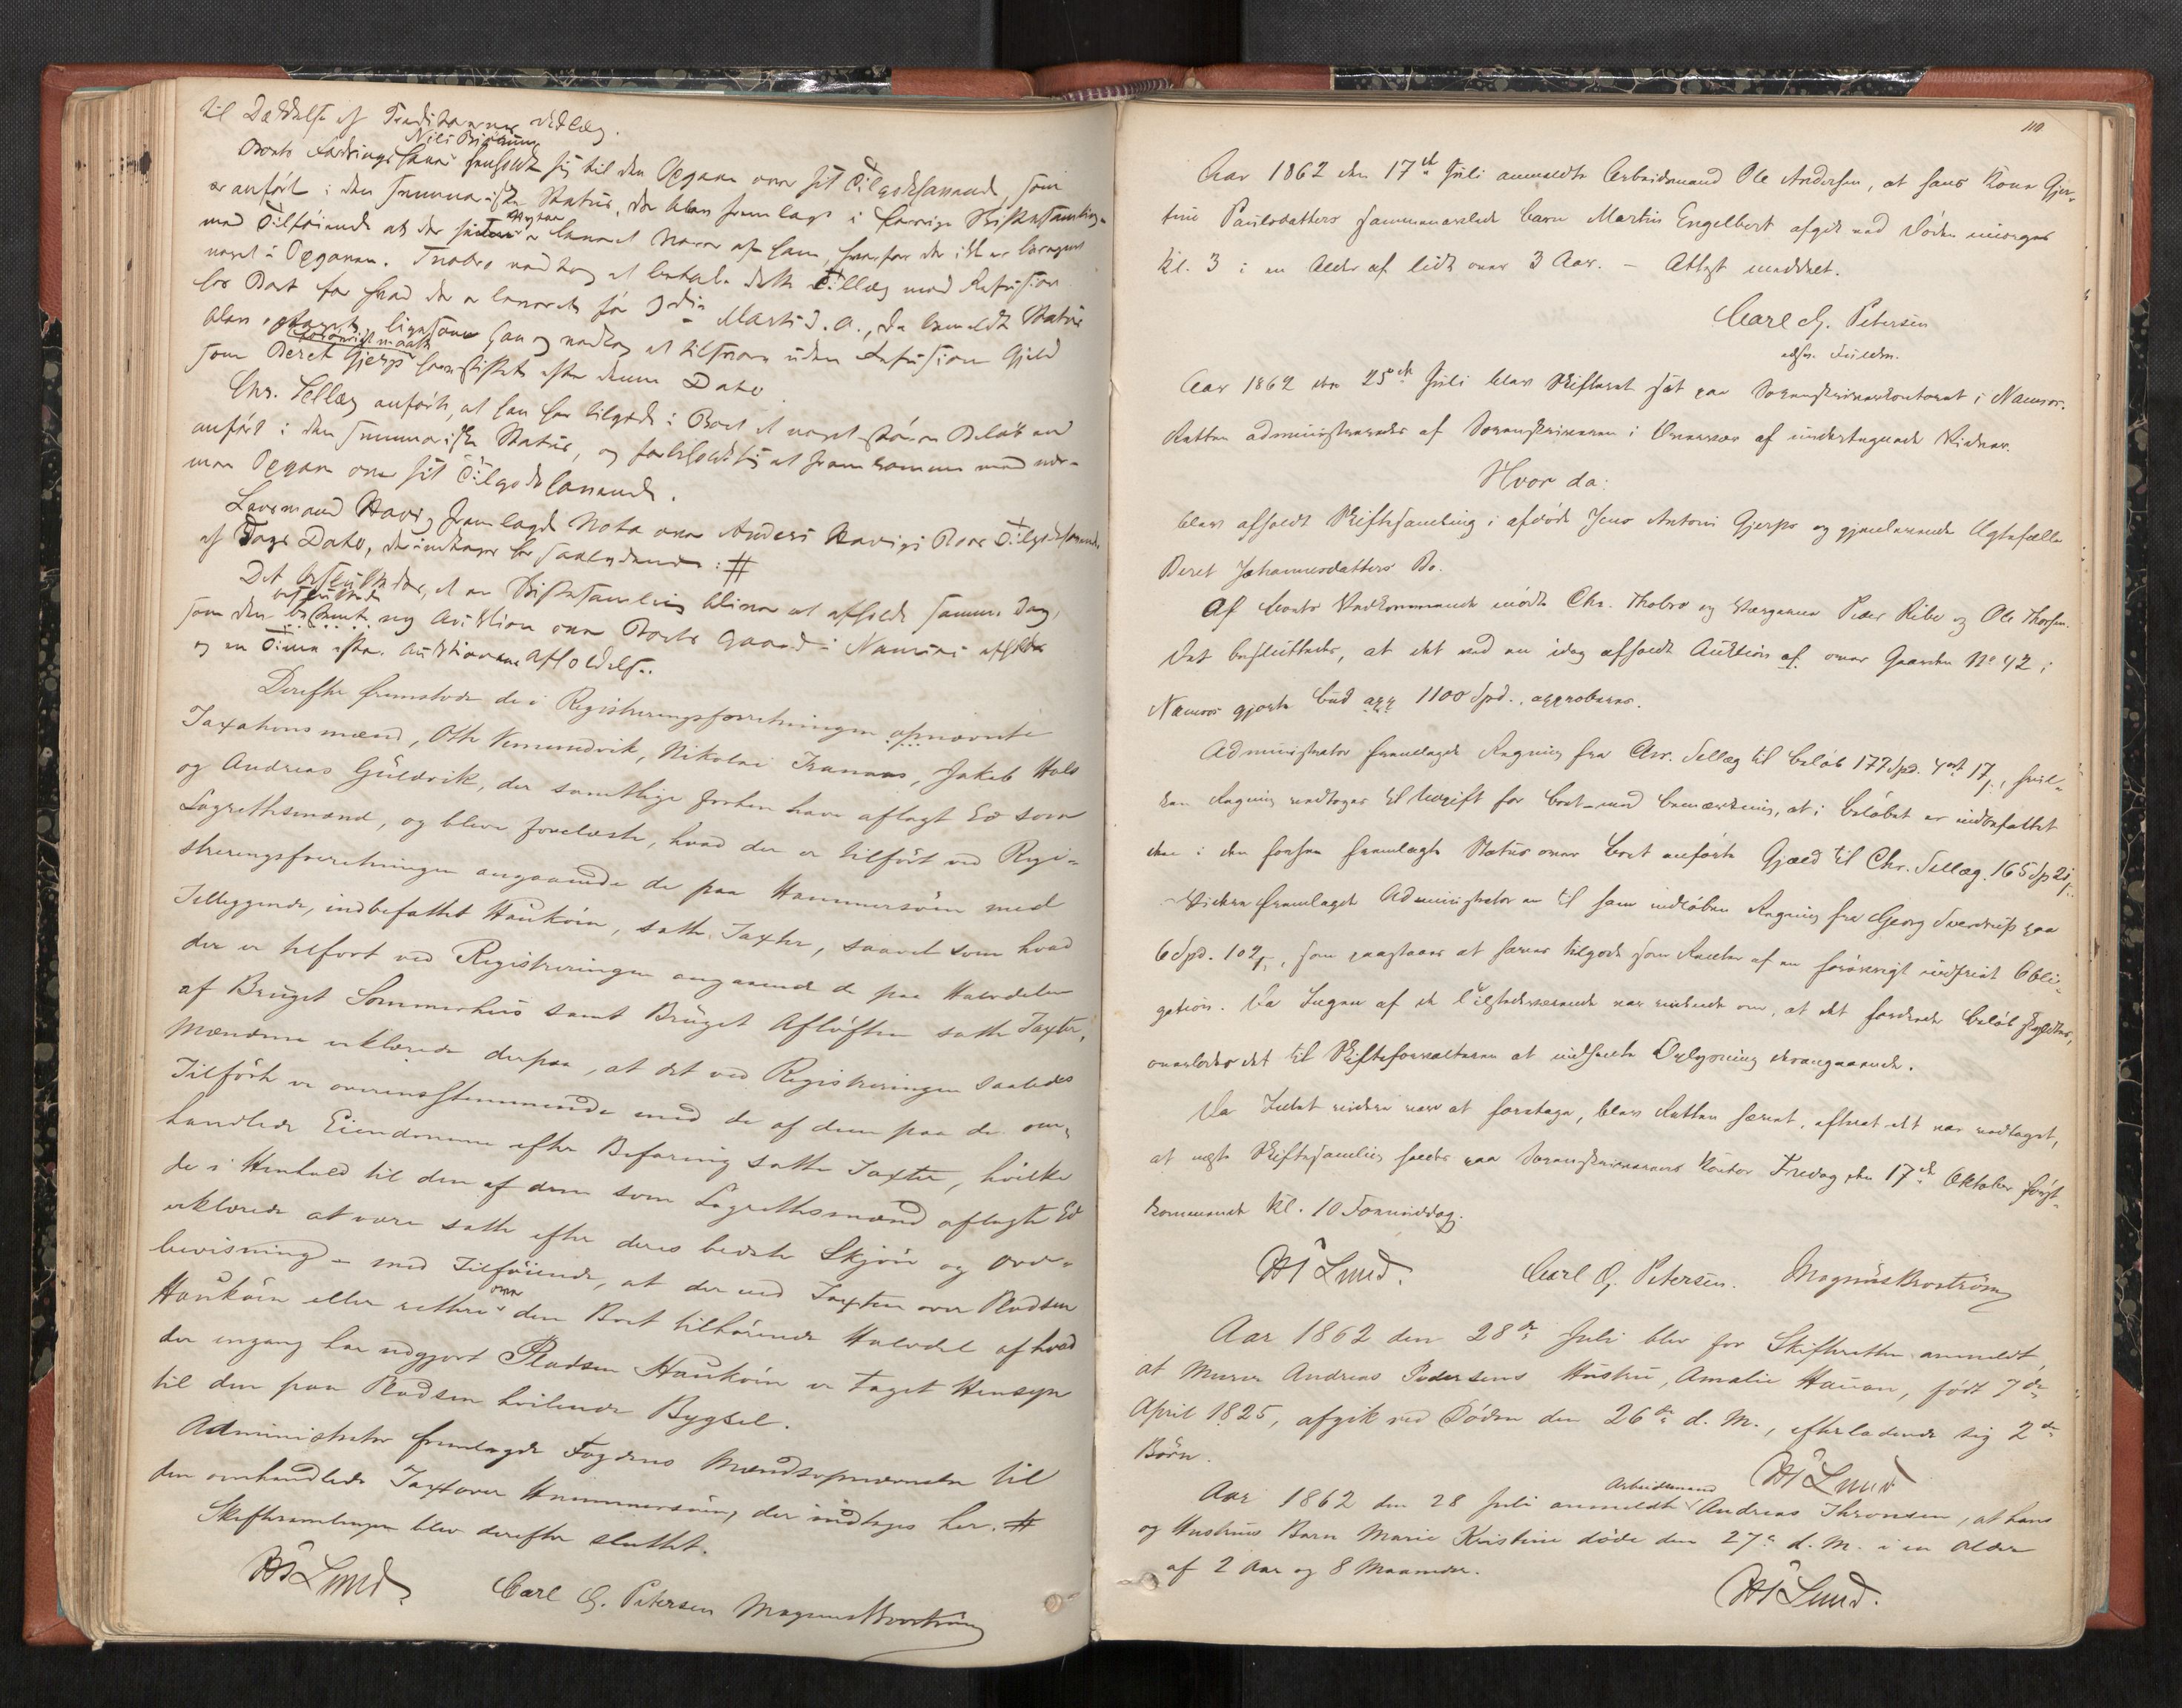 til Dækkelse af Kreditorerne vedtæg.
Niels Bjørum
Boets fordringshaver henholdt sig til den Opgave over sit Tilgodehavende, som
er anført i den summariske Status, der blev fremlagt i forrige Skiftesamling,
med Tilføiende at der senere er leveret Varer af ham, hvorfor der ikke er beregnet
noget i Opgaven. Thobro vedtog at betale dette Tillæg mod Refusion
hos Boet for hvad der er leveret før 3die Marts d. A., da bemeldte Status
blev optaget, ligesom han og vedtog at tilsvare uden Refusion Gjeld
som Beret Gjerps har stiftet efter denne Dato
Chr. Sellæg anførte, at han har tilgode i Boet et noget større Beløb end
anført i den summariske Status, og forbeholdt sig at fremkomme med nær-
mere Opgave over sit Tilgodehavende.
Lensmand Havig fremlagde Nota over Anders Havigs Boes Tilgodehavende
af Dags Dato, der indtages her saalydende: #
Det besluttedes, at en Skiftesamling bliver at afholde samme Dag,
som den besluttede ny Auktion over Boets Gaard i Namsos afholdes
og en Time efter Auktionens Afholdelse.
Derefter fremstode de i Registreringsforretningen opnævnte
Taxationsmænd, Otte Vemundvik, Nikolai Tranaas, Jakob Hals
og Andreas Guldvik, der samtlige forhen have aflagt Ed som
Lagrettesmænd, og bleve forelæste, hvad der er tilført ved Regi-
streringsforretningen angaaende de paa Hammersøen med
Tilliggende, indbefattet Haukøen, satte Taxter, saavel som hvad
der er tilført ved Registreringen angaaende de paa Halvdelen
af Bruget Sommerhus samt Bruget Afløften satte Taxter,
Mændene erklærede derpaa, at det ved Registreringen saaledes
Tilførte er overensstemmende med de af dem paa de om-
handlede Eiendomme efter Befaring satte Taxter, hvilke
de i Henhold til den af dem som Lagrettesmænd aflagte Ed
erklærede at være satte efter deres bedste Skjøn og Over-
bevisning – med Tilføiende, at der ved Taxten over Pladsen
Haukøen eller rettere over den Boet tilhørende Halvdel af hvad
der engang har udgjort Pladsen Haukøen er taget Hensyn
til den paa Pladsen hvilende Bygsel.
Administrator fremlagde Fogdens Mændsopnævnelse til
den omhandlede Taxt over Hammersøen, der indtages her. #
Skiftesamlingen blev derefter sluttet.
HS Lund Carl G. Petersen Magnus Brostrøm
110.
Aar 1862 den 17de Juli anmeldte Arbeidsmand Ole Andersen, at hans Kone Gjer-
tine Paulsdatters sammenavlede Barn Martin Engelbert afgik ved Døden imorges
Kl. 3 i en Alder af lidt over 3 Aar. – Attest meddelt.
Carl G. Petersen
edsv. Fuldm.
Aar 1862 den 25de Juli blev Skifteret sat paa Sorenskriverkontoret i Namsos.
Retten administreredes af Sorenskriveren i Overvær af undertegnede Vidner.
Hvor da:
blev afholdt Skiftesamling i afdøde Jens Antoni Gjerps og gjenlevende Ægtefælle
Beret Johannesdatters Bo.
Af Boets Vedkommende mødte Chr. Thobro og Værgerne Peder Ribe og Ole Thorsen.
Det besluttedes, at det ved en idag afholdt Auktion af over Gaarden No 42 i
Namsos gjorte Bud app 1100 Spd., approberes.
Administrator fremlagde Regning fra Chr. Sellæg til Beløb 177 Spd. 4 ort 17 ſ, hvil-
ken Regning vedtoges til Udgift for Boet med Bemærkning, at i Beløbet er indbefattet
den i den forhen fremlagte Status over Boet anførte Gjæld til Chr. Sellæg 165 Sp 21 ſ.
Videre fremlagde Administrator en til ham indløben Regning fra Georg Sverdrup paa
6 Spd. 102 ſ, som paastaaes at haves tilgode som Renter af en forøvrigt indfriet Obli-
gation. Da Ingen af de Tilstedeværende var vidende om, at det fordrede Beløb skyldtes,
overlodes det til Skifteforvalteren at indhente Oplysning derangaaende.
Da Intet videre var at foretage, blev Retten hævet, efterat det var vedtaget,
at næste Skiftesamling holdes paa Sorenskriverens Kontor Fredag den 17de Oktober først-
kommende Kl. 10 Formiddag.
HS Lund. Carl G. Petersen. Magnus Brostrøm
Aar 1862 den 28de Juli blev for Skifteretten anmeldt,
at Murer Andreas Pedersens Hustru, Amalie Hauan, født 7de
April 1825, afgik ved Døden den 26de d. M., efterladende sig 2de
Børn.
HS Lund
Aar 1862 den 28 Juli anmeldte Arbeidsmand Andreas Thronsen, at hans
og Hustrues Barn Marie Kristine døde den 27de d. M. i en Alder
af 2 Aar og 8 Maaneder.
HS Lund.